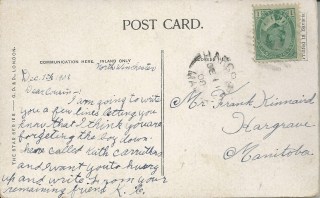 POST CARD.
COMMUNICATION HERE. INLAND ONLY
North Winchester
Dec. 13th 1911
Dear Cousin:-
I am going to write
you a few lines letting you
know that I think you're
forgeting the boy
have called Ruth Carruthers
and I want you to hurry
up and write. From your
remaining friend
Mr. Frank Kinnaird
Hargrave
Manitoba
THE STAR SERIES
G.D.&D., LONDON.